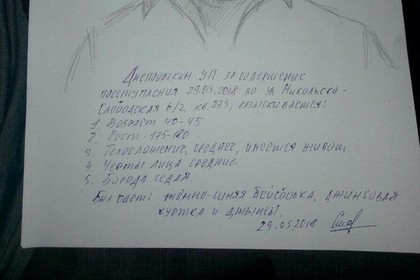 УП за совершение
29.05.2018 по ул Микольско-
Слободская 6/2, кв. 273, разыскивается:
1. Возраст 40-45
2. Рост 175-180
3. Телосложение, среднее, имеется живот.
4. Черты лица средние.
5. Борода седая.
Был одет: тёмно-синяя бейсболка, джинсовая
куртка и джынсы.
29.05.2018